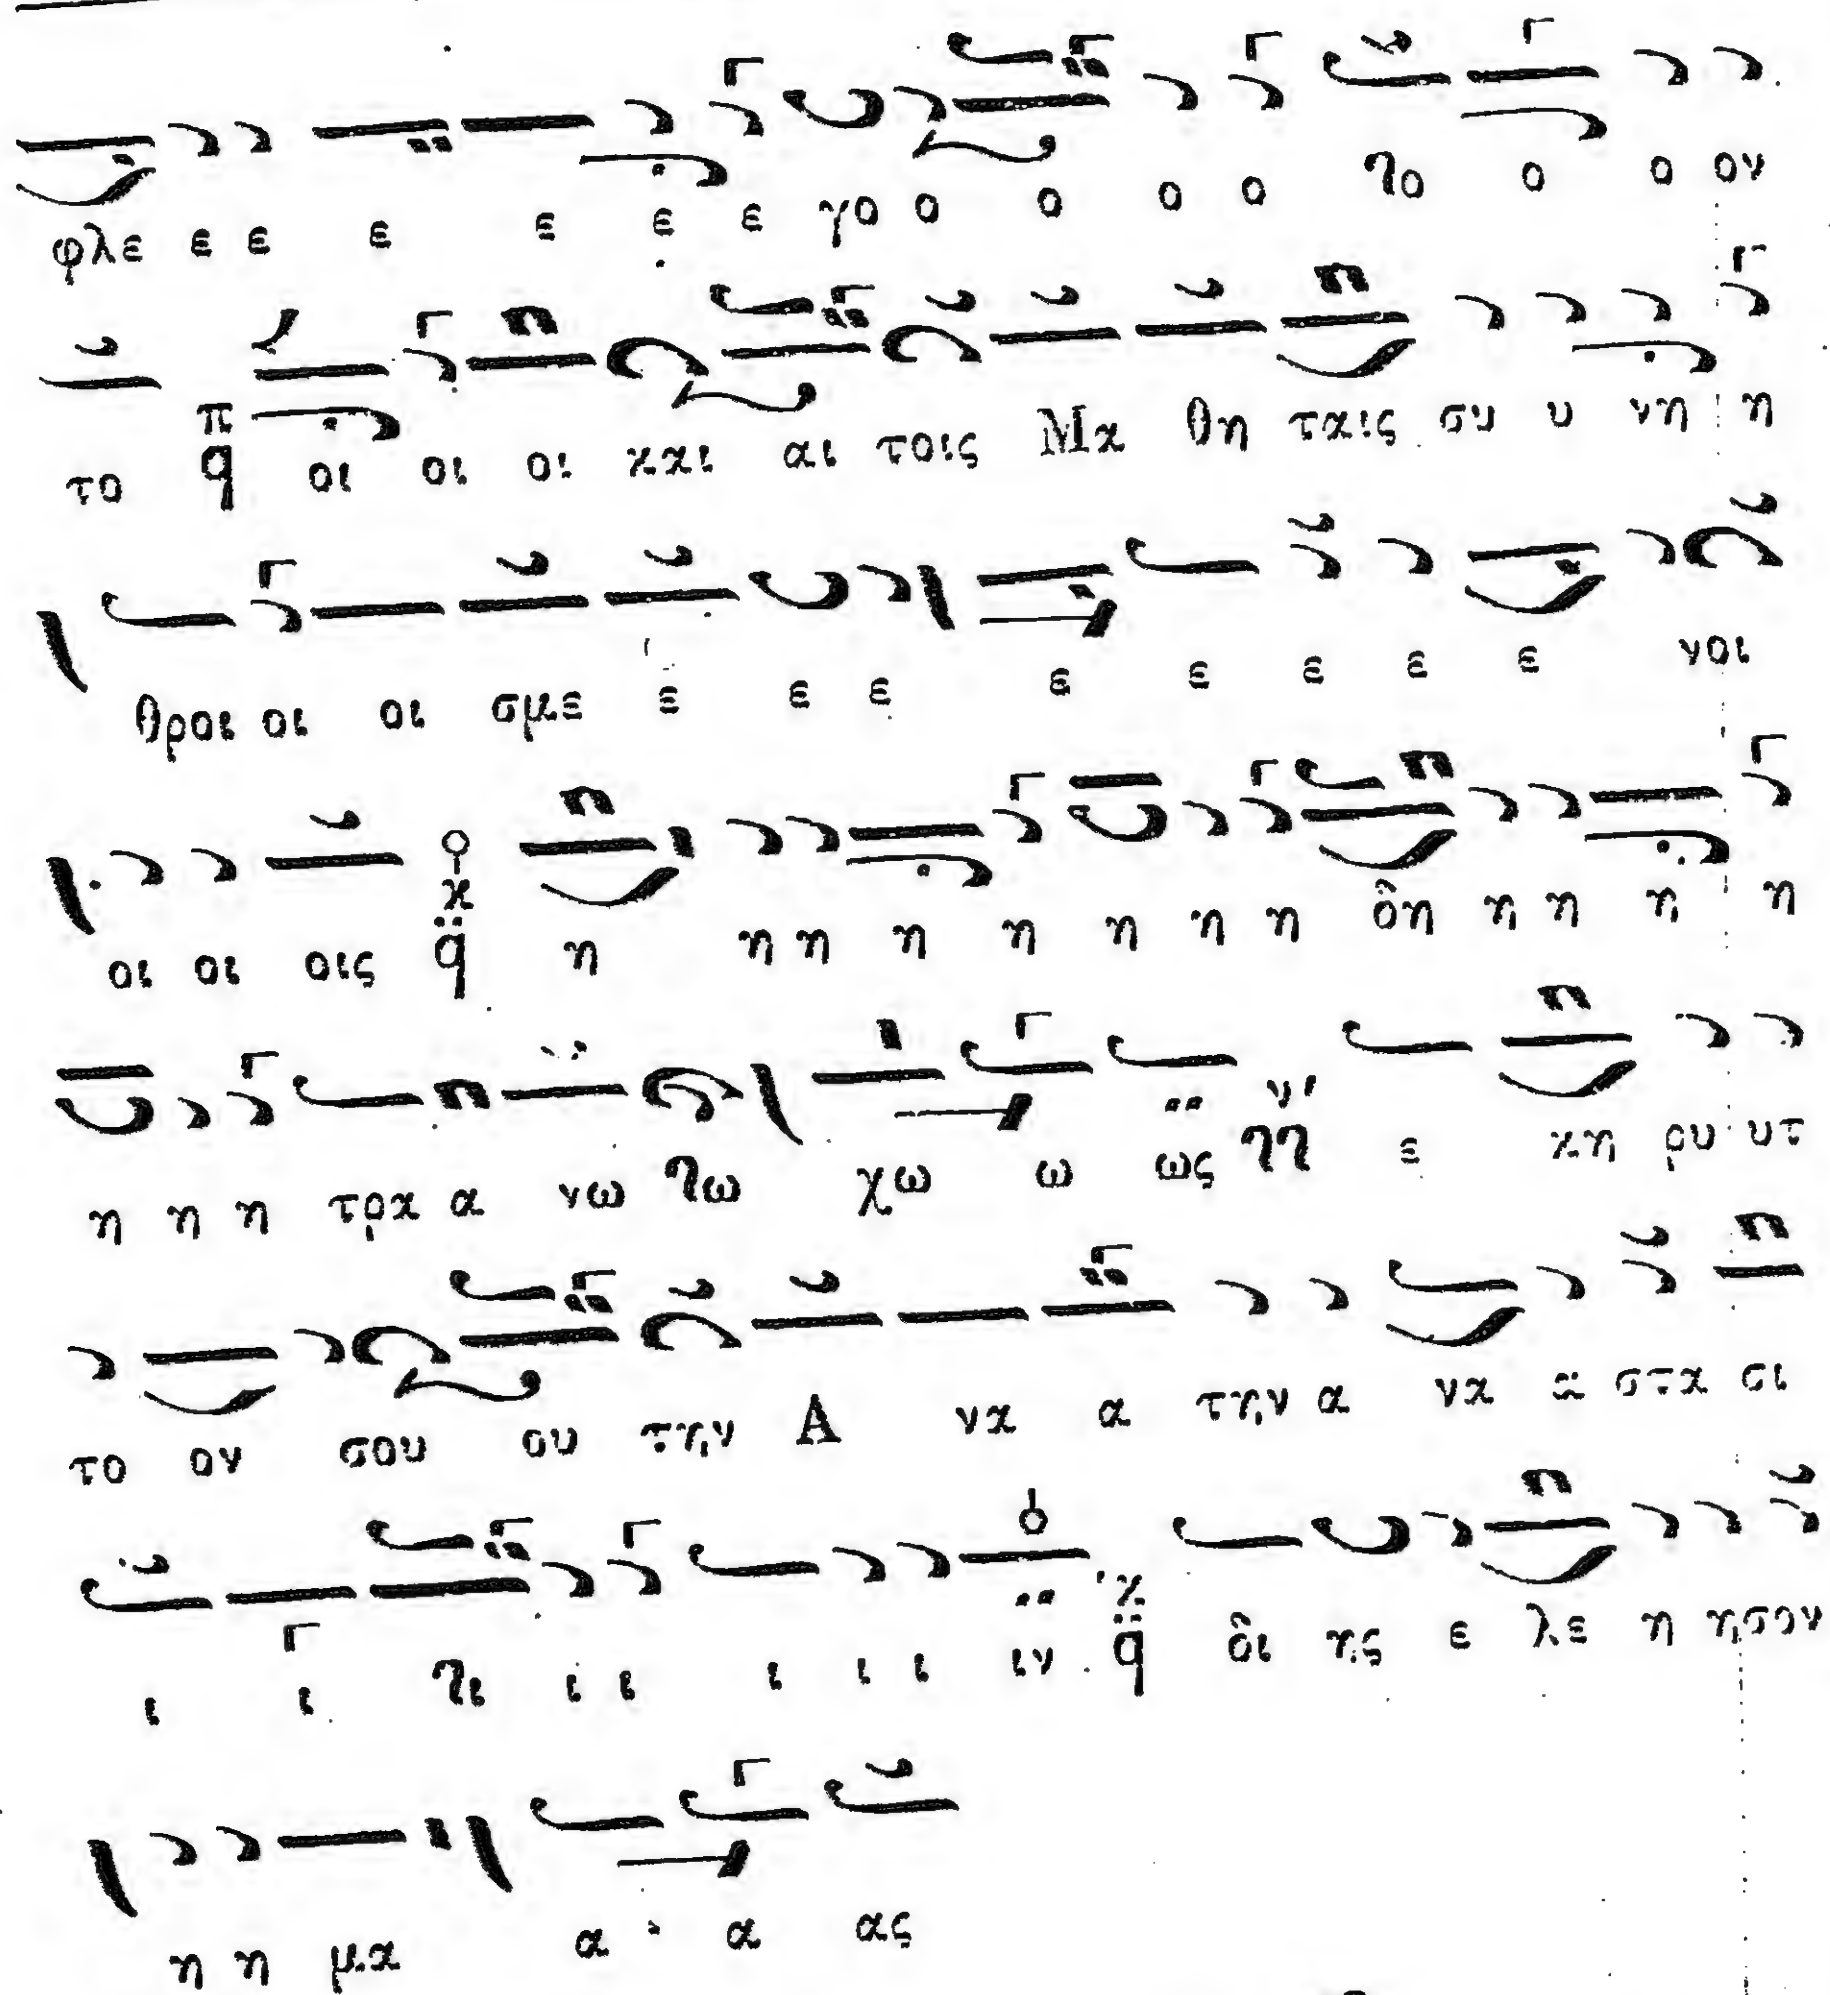 φλε ε ε ε ε ε ε γο ο ο ο ο ϡο ο ο ον
το π q οι οι οι και αι τοις Μα θη ταις συ υ νη η
θροι οι οι σμε ε ε ε ε ε ε ε ε νοι
οι οι οις κ q̈ η η η η η η η η δη η η η η
η η η τρα α νω ϡω χω ω ως ν ϡϡ ε κη ρυ υτ
το ον σου ου την Α να α την α να α στα σι
ι ι ϡι ι ι ι ι ι ιν κ q̈ δι ης ε λε η ησον
η η μα α α ας